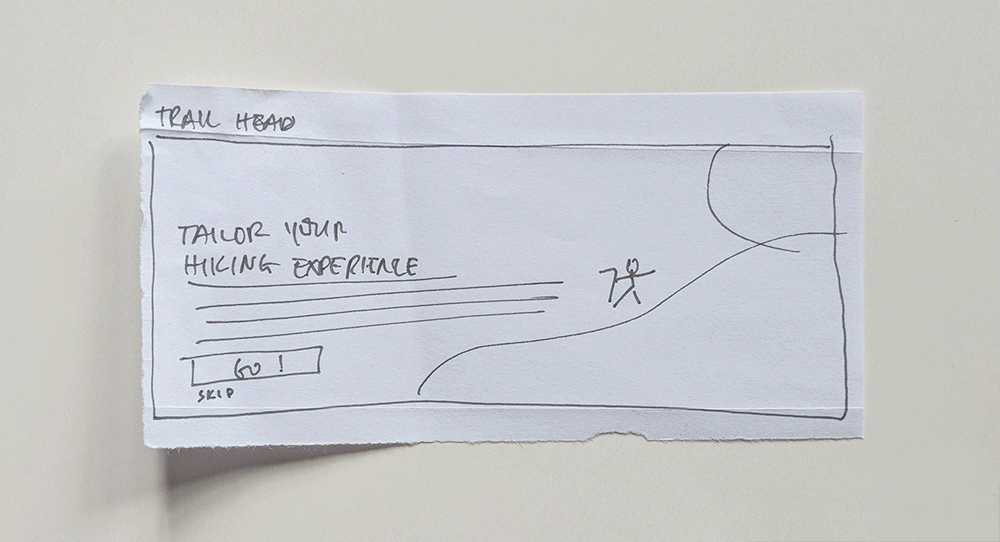 TRAIL HEAD
TAILOR YOUR
HIKING EXPERIENCE
GO!
SKIP